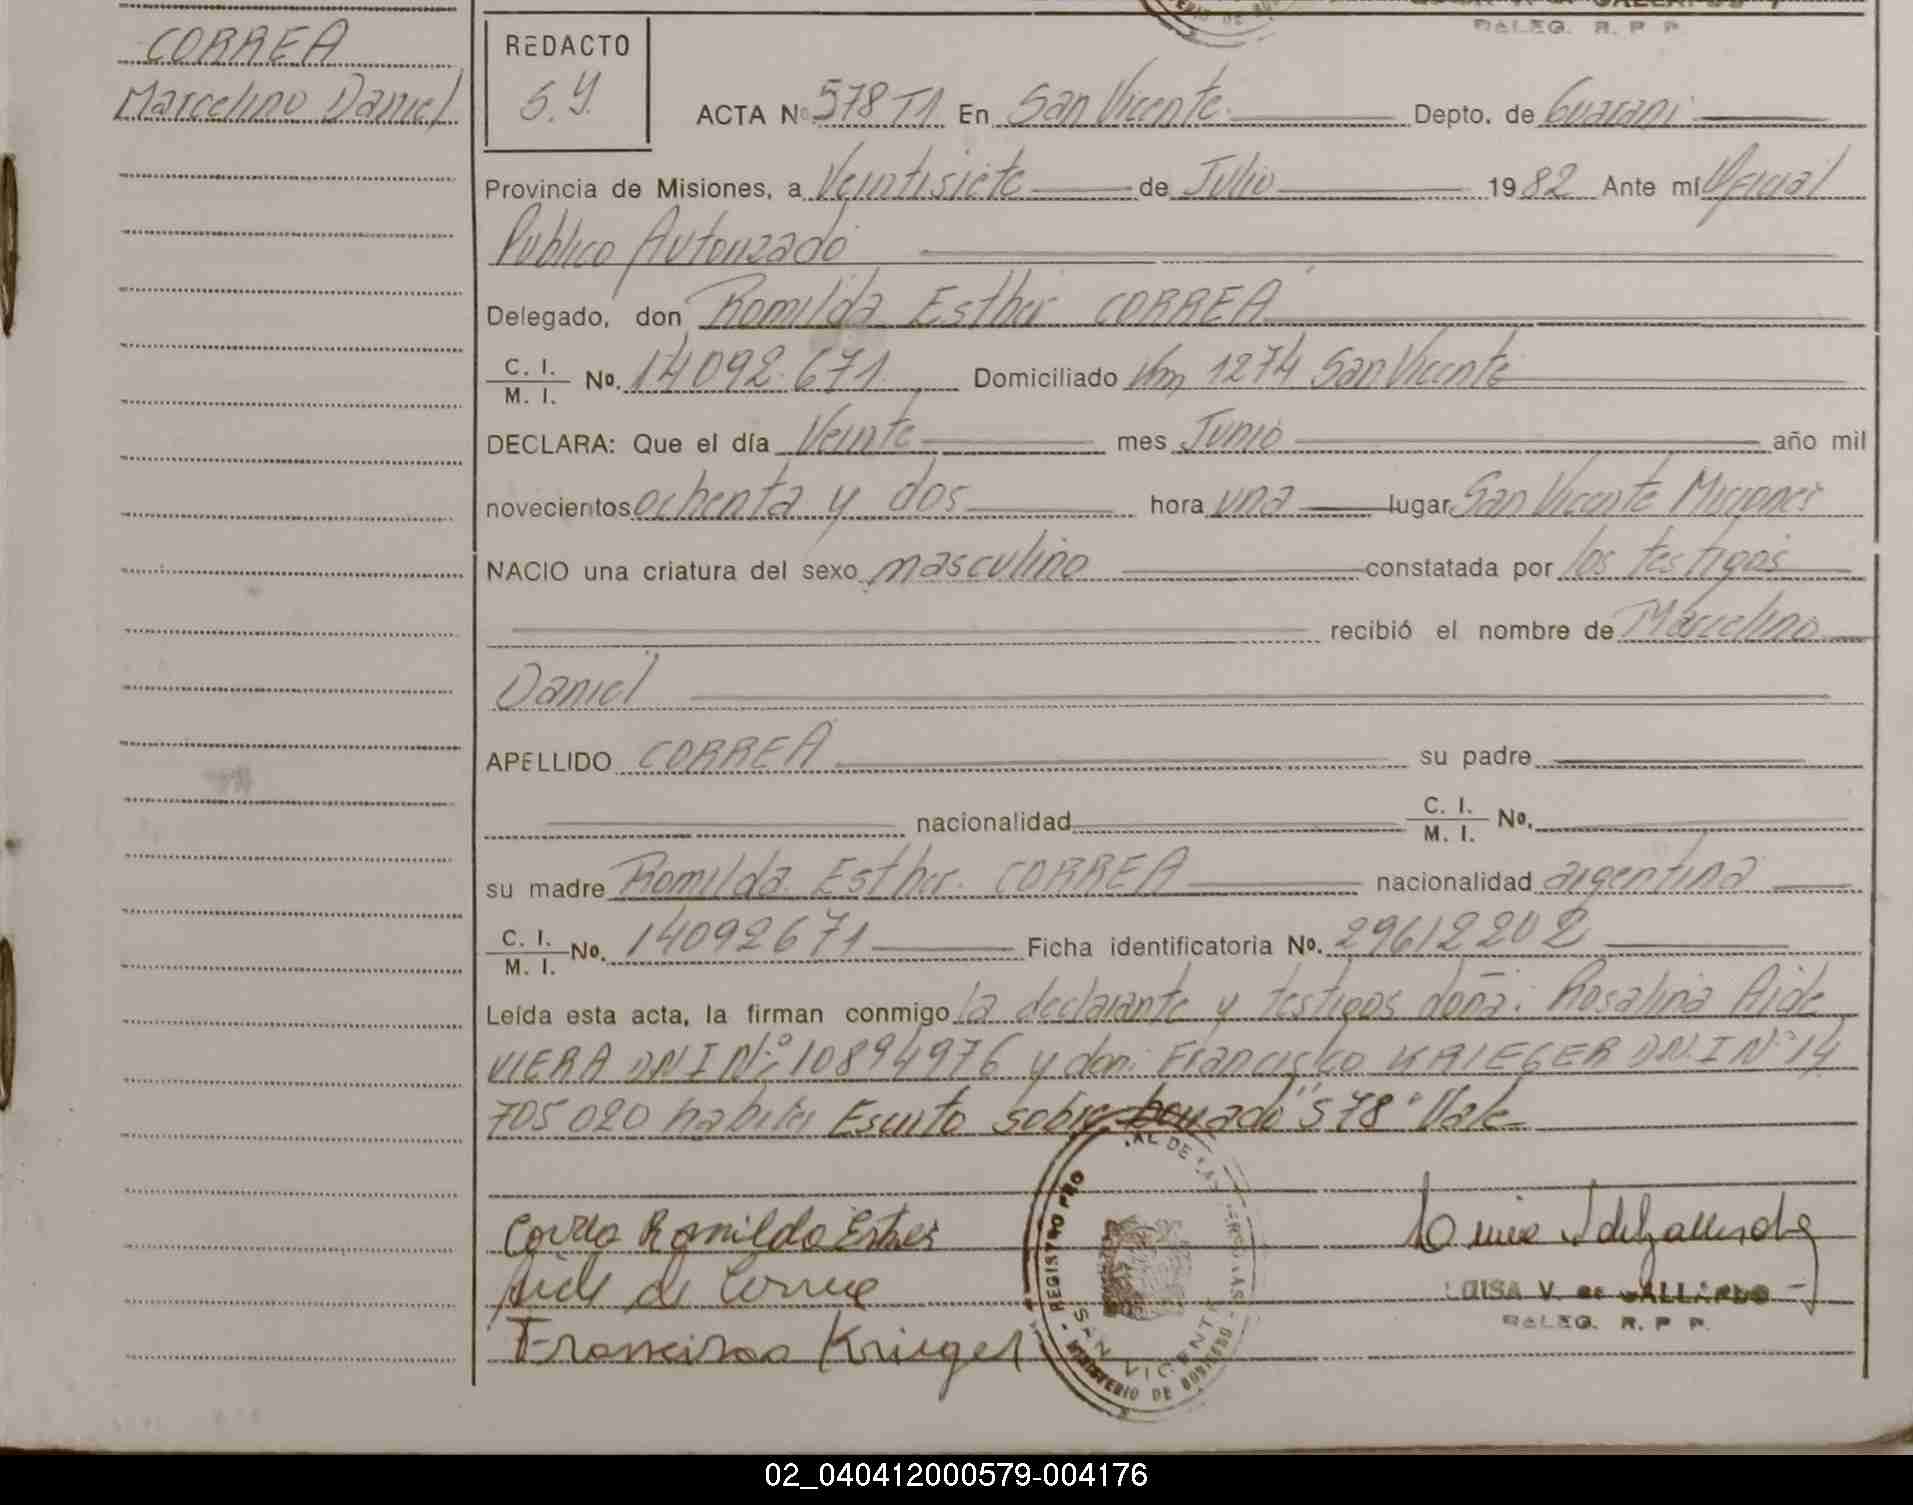 DELEG. R. P. P.
CORREA
Marcelino Daniel
REDACTO
S.Y.
ACTA Nº 578 T1 En San Vicente Depto. de Guarani
Provincia de Misiones, a Veintisiete de Julio 1982 Ante mí Oficial
Publico Autorizado
Delegado, don Romilda Esther CORREA
C. I. / M. I. Nº. 14092.671 Domiciliado Km 1274 San Vicente
DECLARA: Que el día Veinte mes Junio año mil
novecientos ochenta y dos hora una lugar San Vicente Misiones
NACIO una criatura del sexo masculino constatada por los testigos
recibió el nombre de Marcelino
Daniel
APELLIDO CORREA su padre
nacionalidad C. I. / M. I. Nº.
su madre Romilda Esther CORREA nacionalidad argentina
C. I. / M. I. Nº. 14092671 Ficha identificatoria Nº. 29612202
Leída esta acta, la firman conmigo la declarante y testigos doña: Rosalina Aide
VIERA DNI Nº 10894976 y don: Francisco KRIEGER D.N.I Nº 14
705020 habiles Escrito sobre borrado "578" Vale
Correa Romilda Esther
Aide de Correa
Francisco Krieger
REGISTRO PRO AL DE LAS PERSONAS
SAN VICENTE
MINISTERIO DE GOBIERNO
LUISA V. de GALLARDO
DELEG. R. P. P.
02_040412000579-004176